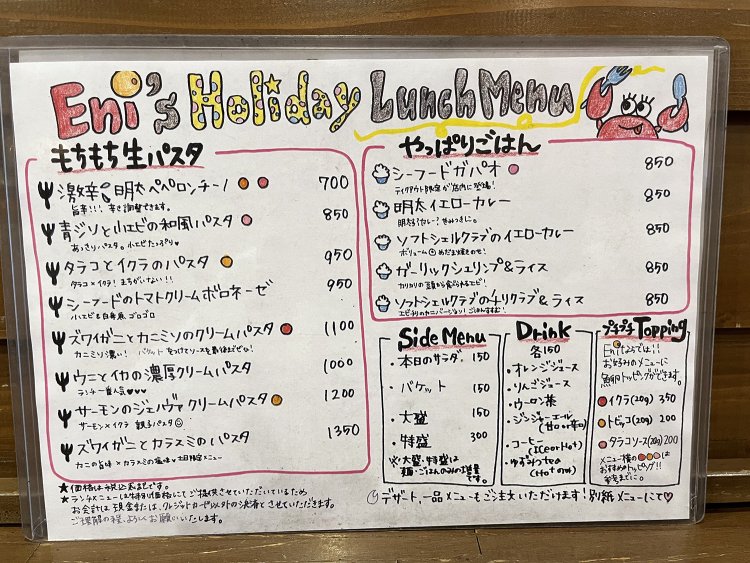 Eni's Holiday Lunch Menu
もちもち生パスタ
激辛明太ペペロンチーノ 700
旨辛!!! 辛さ調整できます。
青ジソと小エビの和風パスタ 850
あっさりパスタ。小エビたっぷり♥
タラコとイクラのパスタ 950
タラコ×イクラ! まちがいない!!
シーフードのトマトクリームボロネーゼ 950
小エビ&白身魚 ゴロゴロ
ズワイガニとカニミソのクリームパスタ 1100
カニミソ濃い! バケットをつけてソースを最後までぜひ!
ウニとイカの濃厚クリームパスタ 1000
ランチ一番人気♥♥♥
サーモンのジェノヴァクリームパスタ 1200
サーモン×イクラ 親子パスタ
ズワイガニとカラスミのパスタ 1350
カニの旨味×カラスミの塩味
★価格は税込表記です。
★ランチメニューは特別価格にてご提供させていただいているため
お会計は現金または、クレジットカード以外の決済とさせていただきます。
ご理解の程、よろしくお願いいたします。
やっぱりごはん
シーフードガパオ 850
テイクアウト限定が店内に登場!
明太イエローカレー 850
明太子カレー? やみつきに。
ソフトシェルクラブのイエローカレー 850
ボリューム満点 めだま焼きのせ!
ガーリックシュリンプ&ライス 850
カリカリの頭から食べられるエビ!
ソフトシェルクラブのチリクラブ&ライス 850
エビチリのカニバージョン! ごはんすすむ!
Side Menu
・本日のサラダ 150
・バケット 150
・大盛 150
・特盛 300
※大盛・特盛は
麺・ごはんのみの増量
です。
Drink
各150
・オレンジジュース
・りんごジュース
・ウーロン茶
・ジンジャーエール
(甘口or辛口)
・コーヒー
(ICE or Hot)
・ゆずみつtea
(Hot only)
プチプチ Topping
Eniならでは!!
お好みのメニューに
魚卵トッピングができます。
イクラ(20g) 350
トビッコ(20g) 200
タラコソース(20g) 200
メニュー横の●●●は
おすすめのトッピング!!
参考までに。
デザート、一品メニューもご注文いただけます! 別紙メニューにて♡